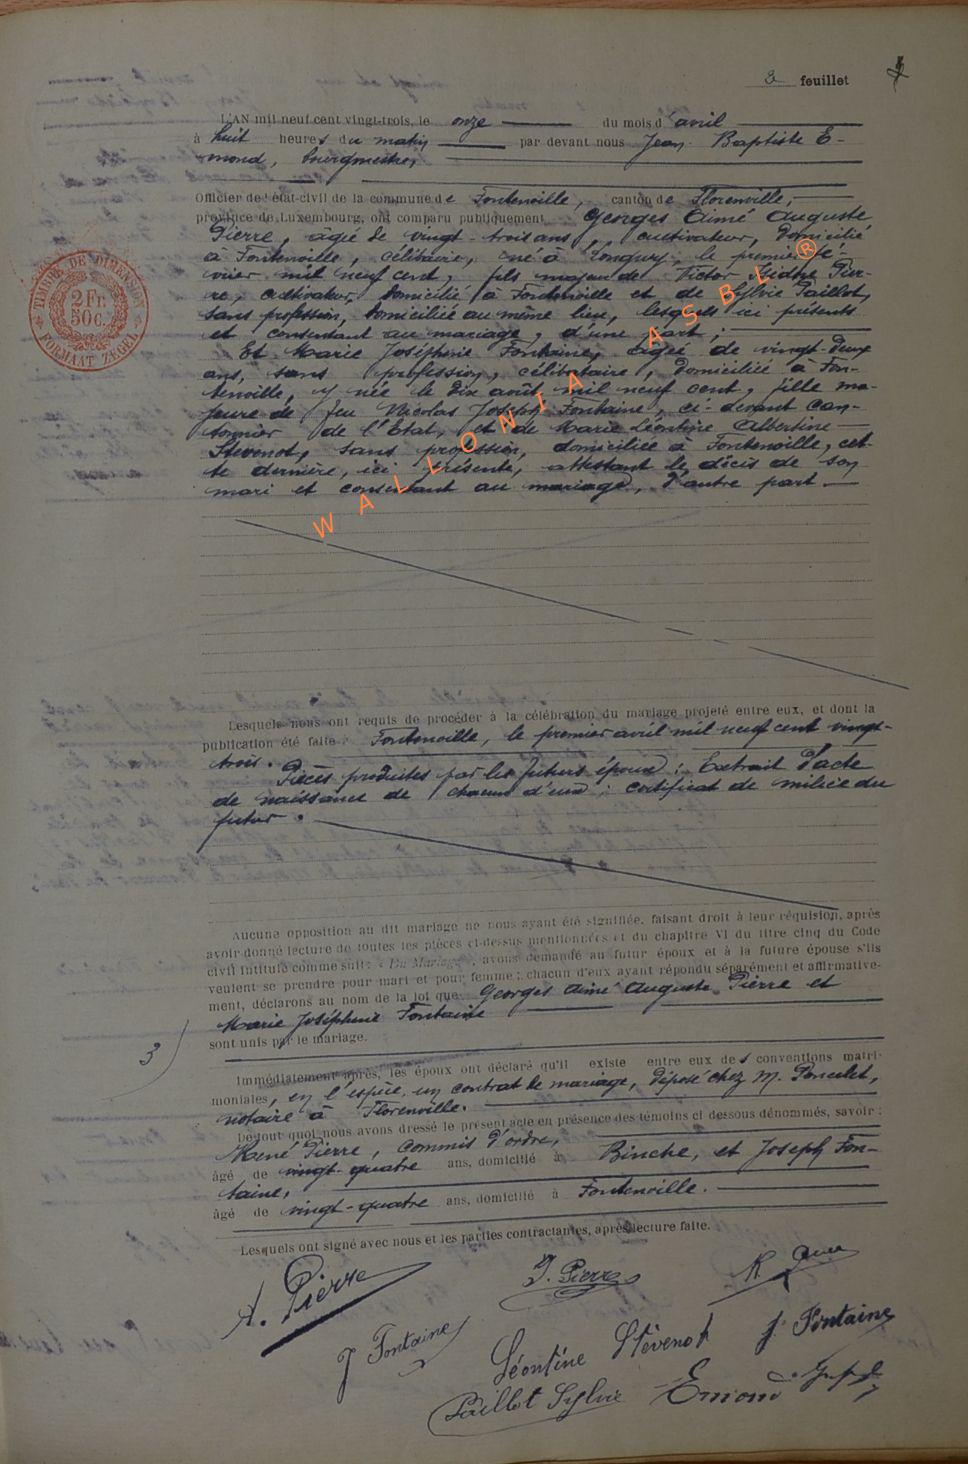 3 feuillet
L'AN mil neuf cent vingt-trois, le onze du mois d'avril
à huit heures du matin par devant nous Jean Baptiste E-
mond, bourgmestre,
Officier de l'état-civil de la commune de Fontenoille, canton de Florenville,
province de Luxembourg, ont comparu publiquement Georges Aimé Auguste
Pierre, âgé de vingt-trois ans, cultivateur, domicilié
à Fontenoille, célibataire, né à Longwy, le premier fé-
vrier mil neuf cent, fils majeur de Victor Pier-
re, cultivateur, domicilié à Fontenoille et de Sylvie Paillot,
sans profession, domiciliée au même lieu, lesquels ici présents
et consentant au mariage, d'une part;
Et Marie Joséphine Fontaine, âgée de vingt-deux
ans, sans profession, célibataire, domiciliée à Fon-
tenoille, y née le dix août mil neuf cent, fille ma-
jeure de feu Nicolas Joseph Fontaine, ci-devant can-
tonnier de l'Etat, et de Marie Léontine Albertine
Stévenot, sans profession, domiciliée à Fontenoille, cet-
te dernière, ici présente, attestant le décès de son
mari et consentant au mariage, d'autre part
WALLONIA ASBL ®
TIMBRE DE DIMENSION
2 Fr.
50 C.
FORMAAT ZEGEL
Lesquels nous ont requis de procéder à la célébration du mariage projeté entre eux, et dont la
publication été faite: Fontenoille, le premier avril mil neuf cent vingt-
trois.
Pièces produites par les futurs époux: Extrait d'acte
de naissance de chacun d'eux; certificat de milice du
futur.
Aucune opposition au dit mariage ne nous ayant été signifiée, faisant droit à leur réquision, après
avoir donné lecture de toutes les pièces ci-dessus mentionnées et du chapitre VI du titre cinq du Code
civil intitulé comme suit: « Du Mariage », avons demandé au futur époux et à la future épouse s'ils
veulent se prendre pour mari et pour femme; chacun d'eux ayant répondu séparément et affirmative-
ment, déclarons au nom de la loi que Georges Aimé Auguste Pierre et
Marie Joséphine Fontaine
sont unis par le mariage.
3
Immédiatement après, les époux ont déclaré qu'il existe entre eux des conventions matri-
moniales, en l'espèce, un contrat de mariage, déposé chez M. Poncelet,
notaire à Florenville.
De tout quoi nous avons dressé le présent acte en présence des témoins ci dessous dénommés, savoir:
René Pierre, commis d'ordre,
âgé de vingt-quatre ans, domicilié à Binche, et Joseph Fon-
taine,
âgé de vingt-quatre ans, domicilié à Fontenoille.
Lesquels ont signé avec nous et les parties contractantes, après lecture faite.
A. Pierre
Pierre
J Fontaine
Léontine Stévenot
J. Fontaine
Paillot Sylvie
Emond